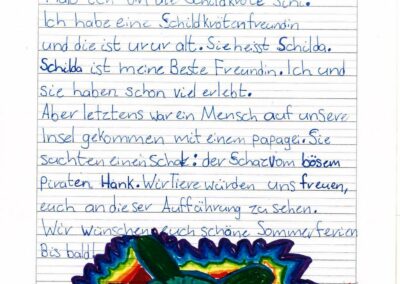 Ich bin die Schildkröte
Ich habe eine Schildkrötenfreundin
und die ist ur ur alt. Sie heisst Schilda.
Schilda ist meine Beste Freundin. Ich und
sie haben schon viel erlebt.
Aber letztens war ein Mensch auf unsere
Insel gekommen mit einem papagei. Sie
suchten einen Schatz: der Schaz vom bösem
piraten Hank. Wir Tiere würden uns freuen,
euch an dieser Aufführung zu sehen.
Wir wünschen euch schöne Sommerferien
Bis bald!